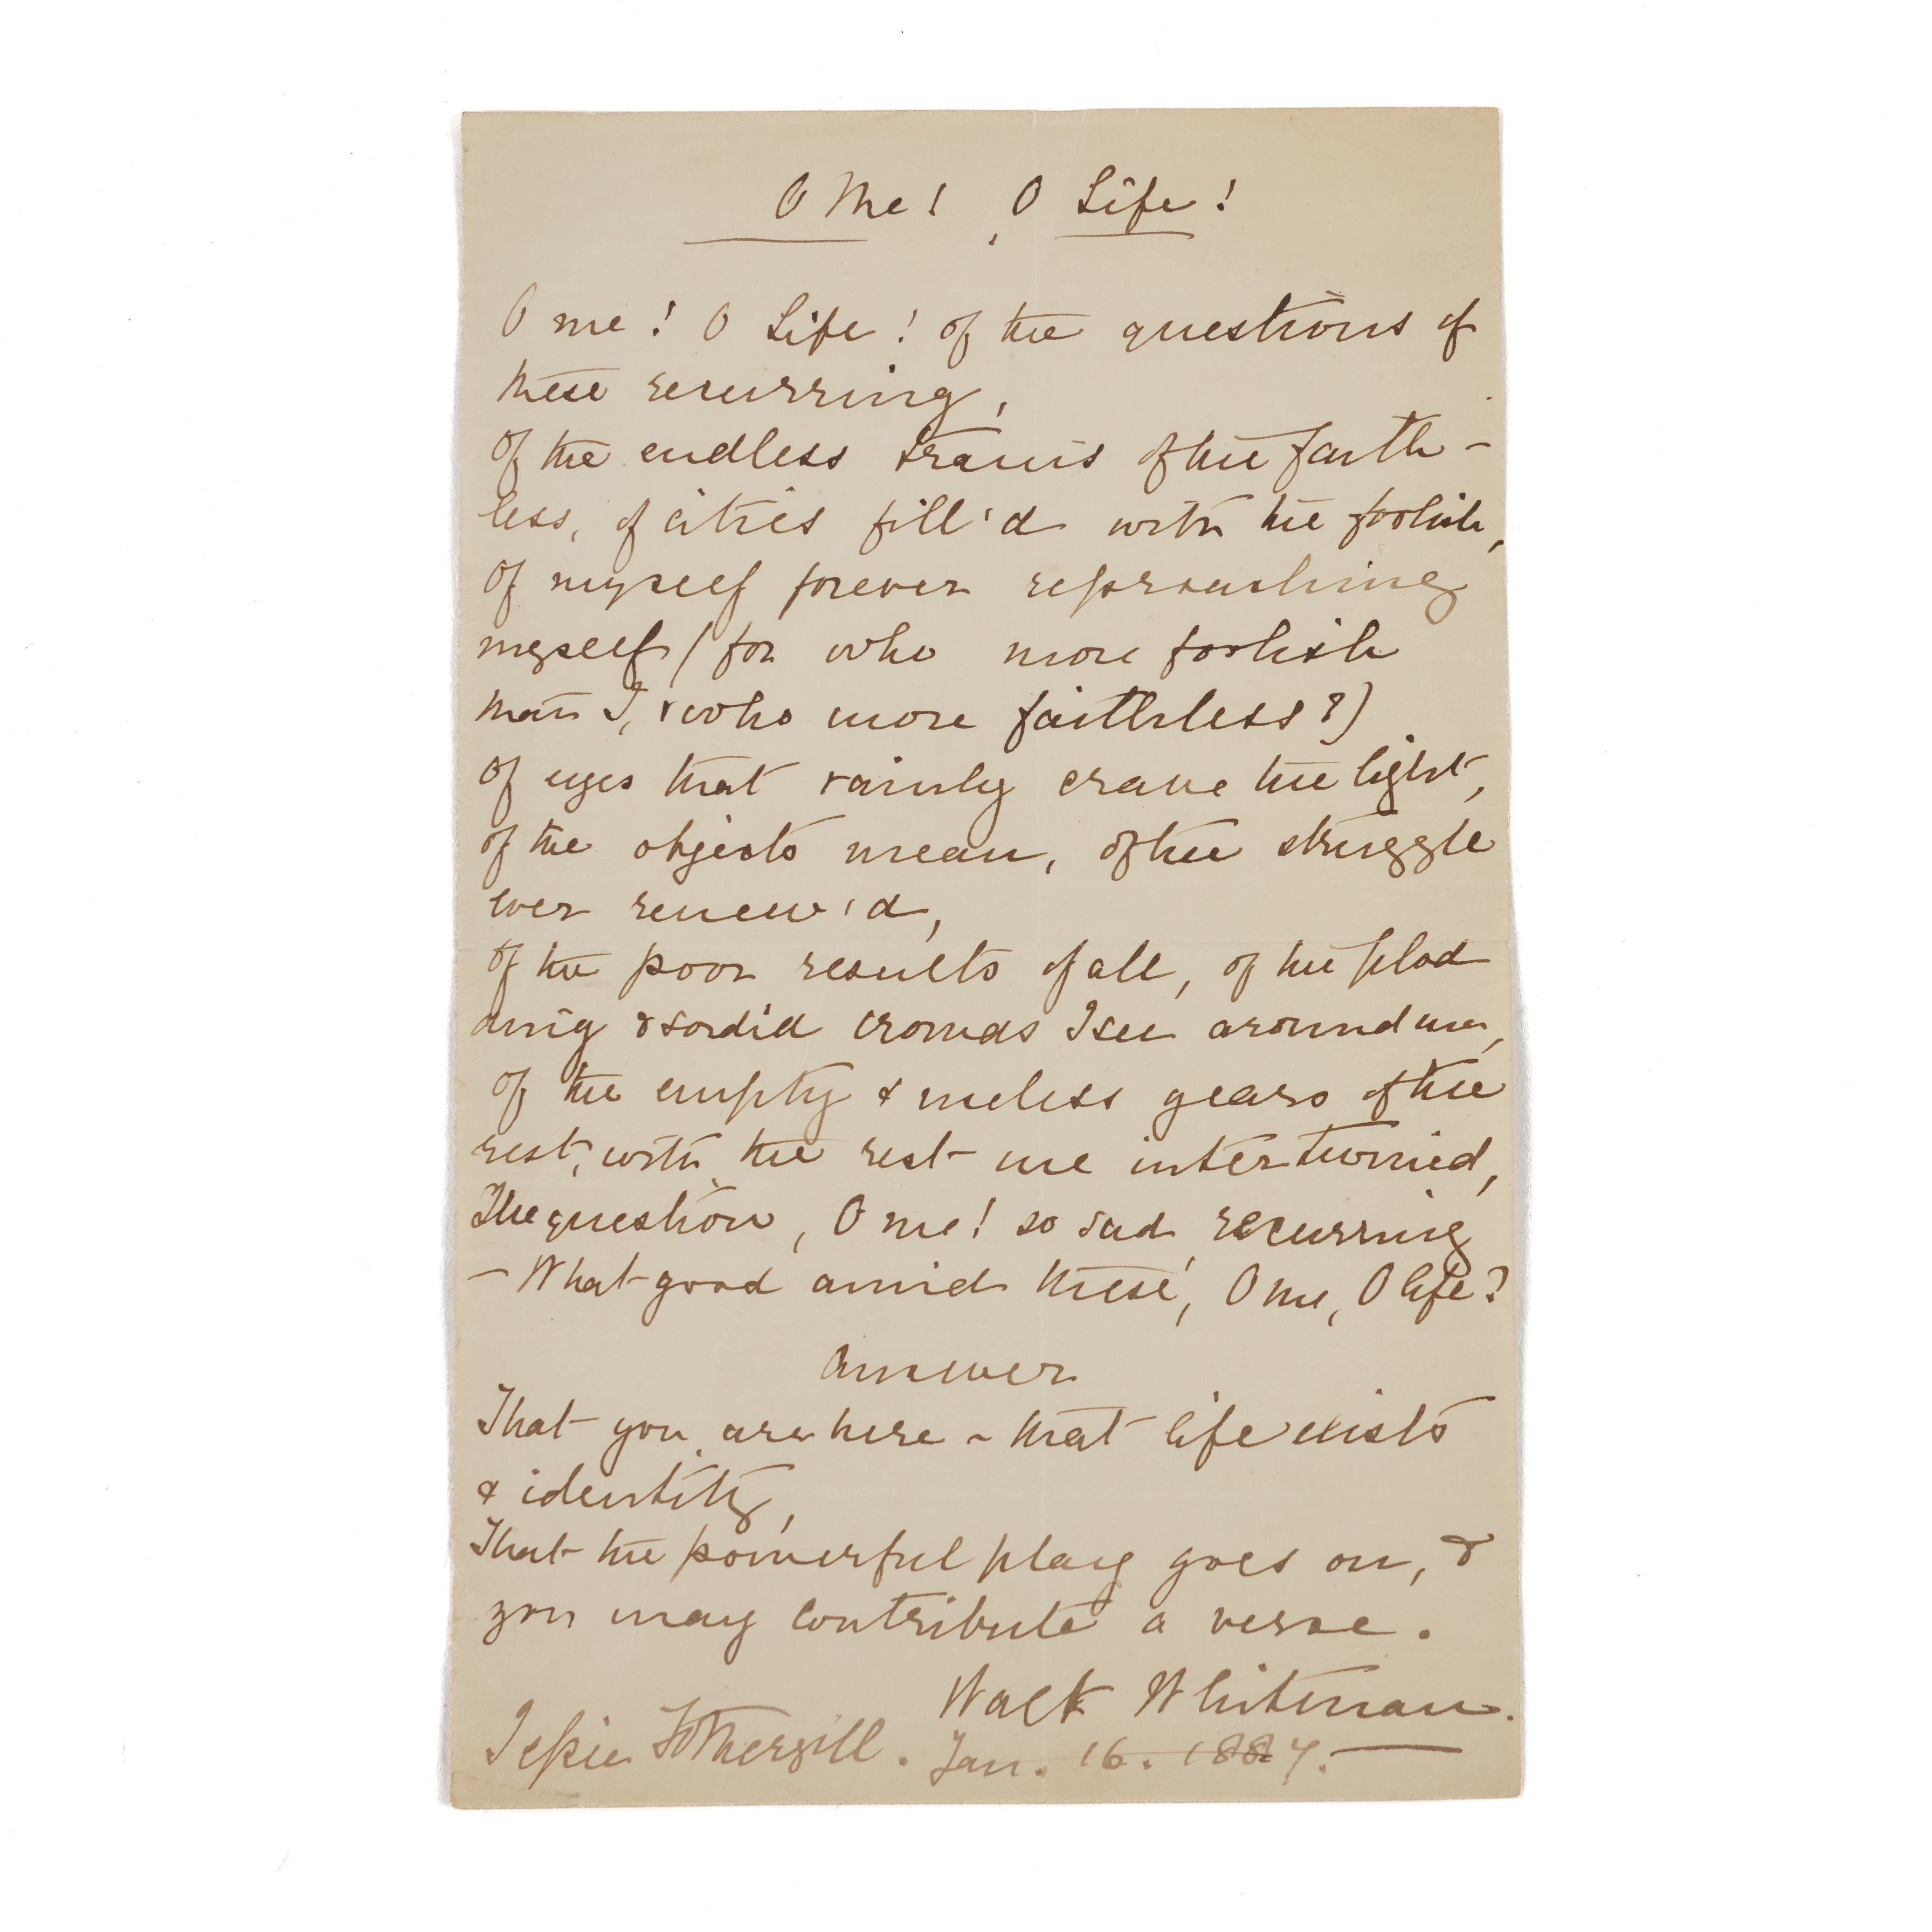 O Me! O Life!
O me! O Life! of the questions of
these recurring,
Of the endless trains of the faith-
less, of cities fill'd with the foolish,
Of myself forever reproaching
myself (for who more foolish
than I, & who more faithless?)
Of eyes that vainly crave the light,
of the objects mean, of the struggle
ever renew'd,
Of the poor results of all, of the plod
ding & sordid crowds I see around me,
Of the empty & useless years of the
rest, with the rest me intertwined,
The question, O me! so sad, recurring
— What good amid these, O me, O life?
Answer
That you are here - that life exists
& identity,
That the powerful play goes on, &
you may contribute a verse.
Walt Whitman.
Jessie Fothergill. Jan. 16. 1887.